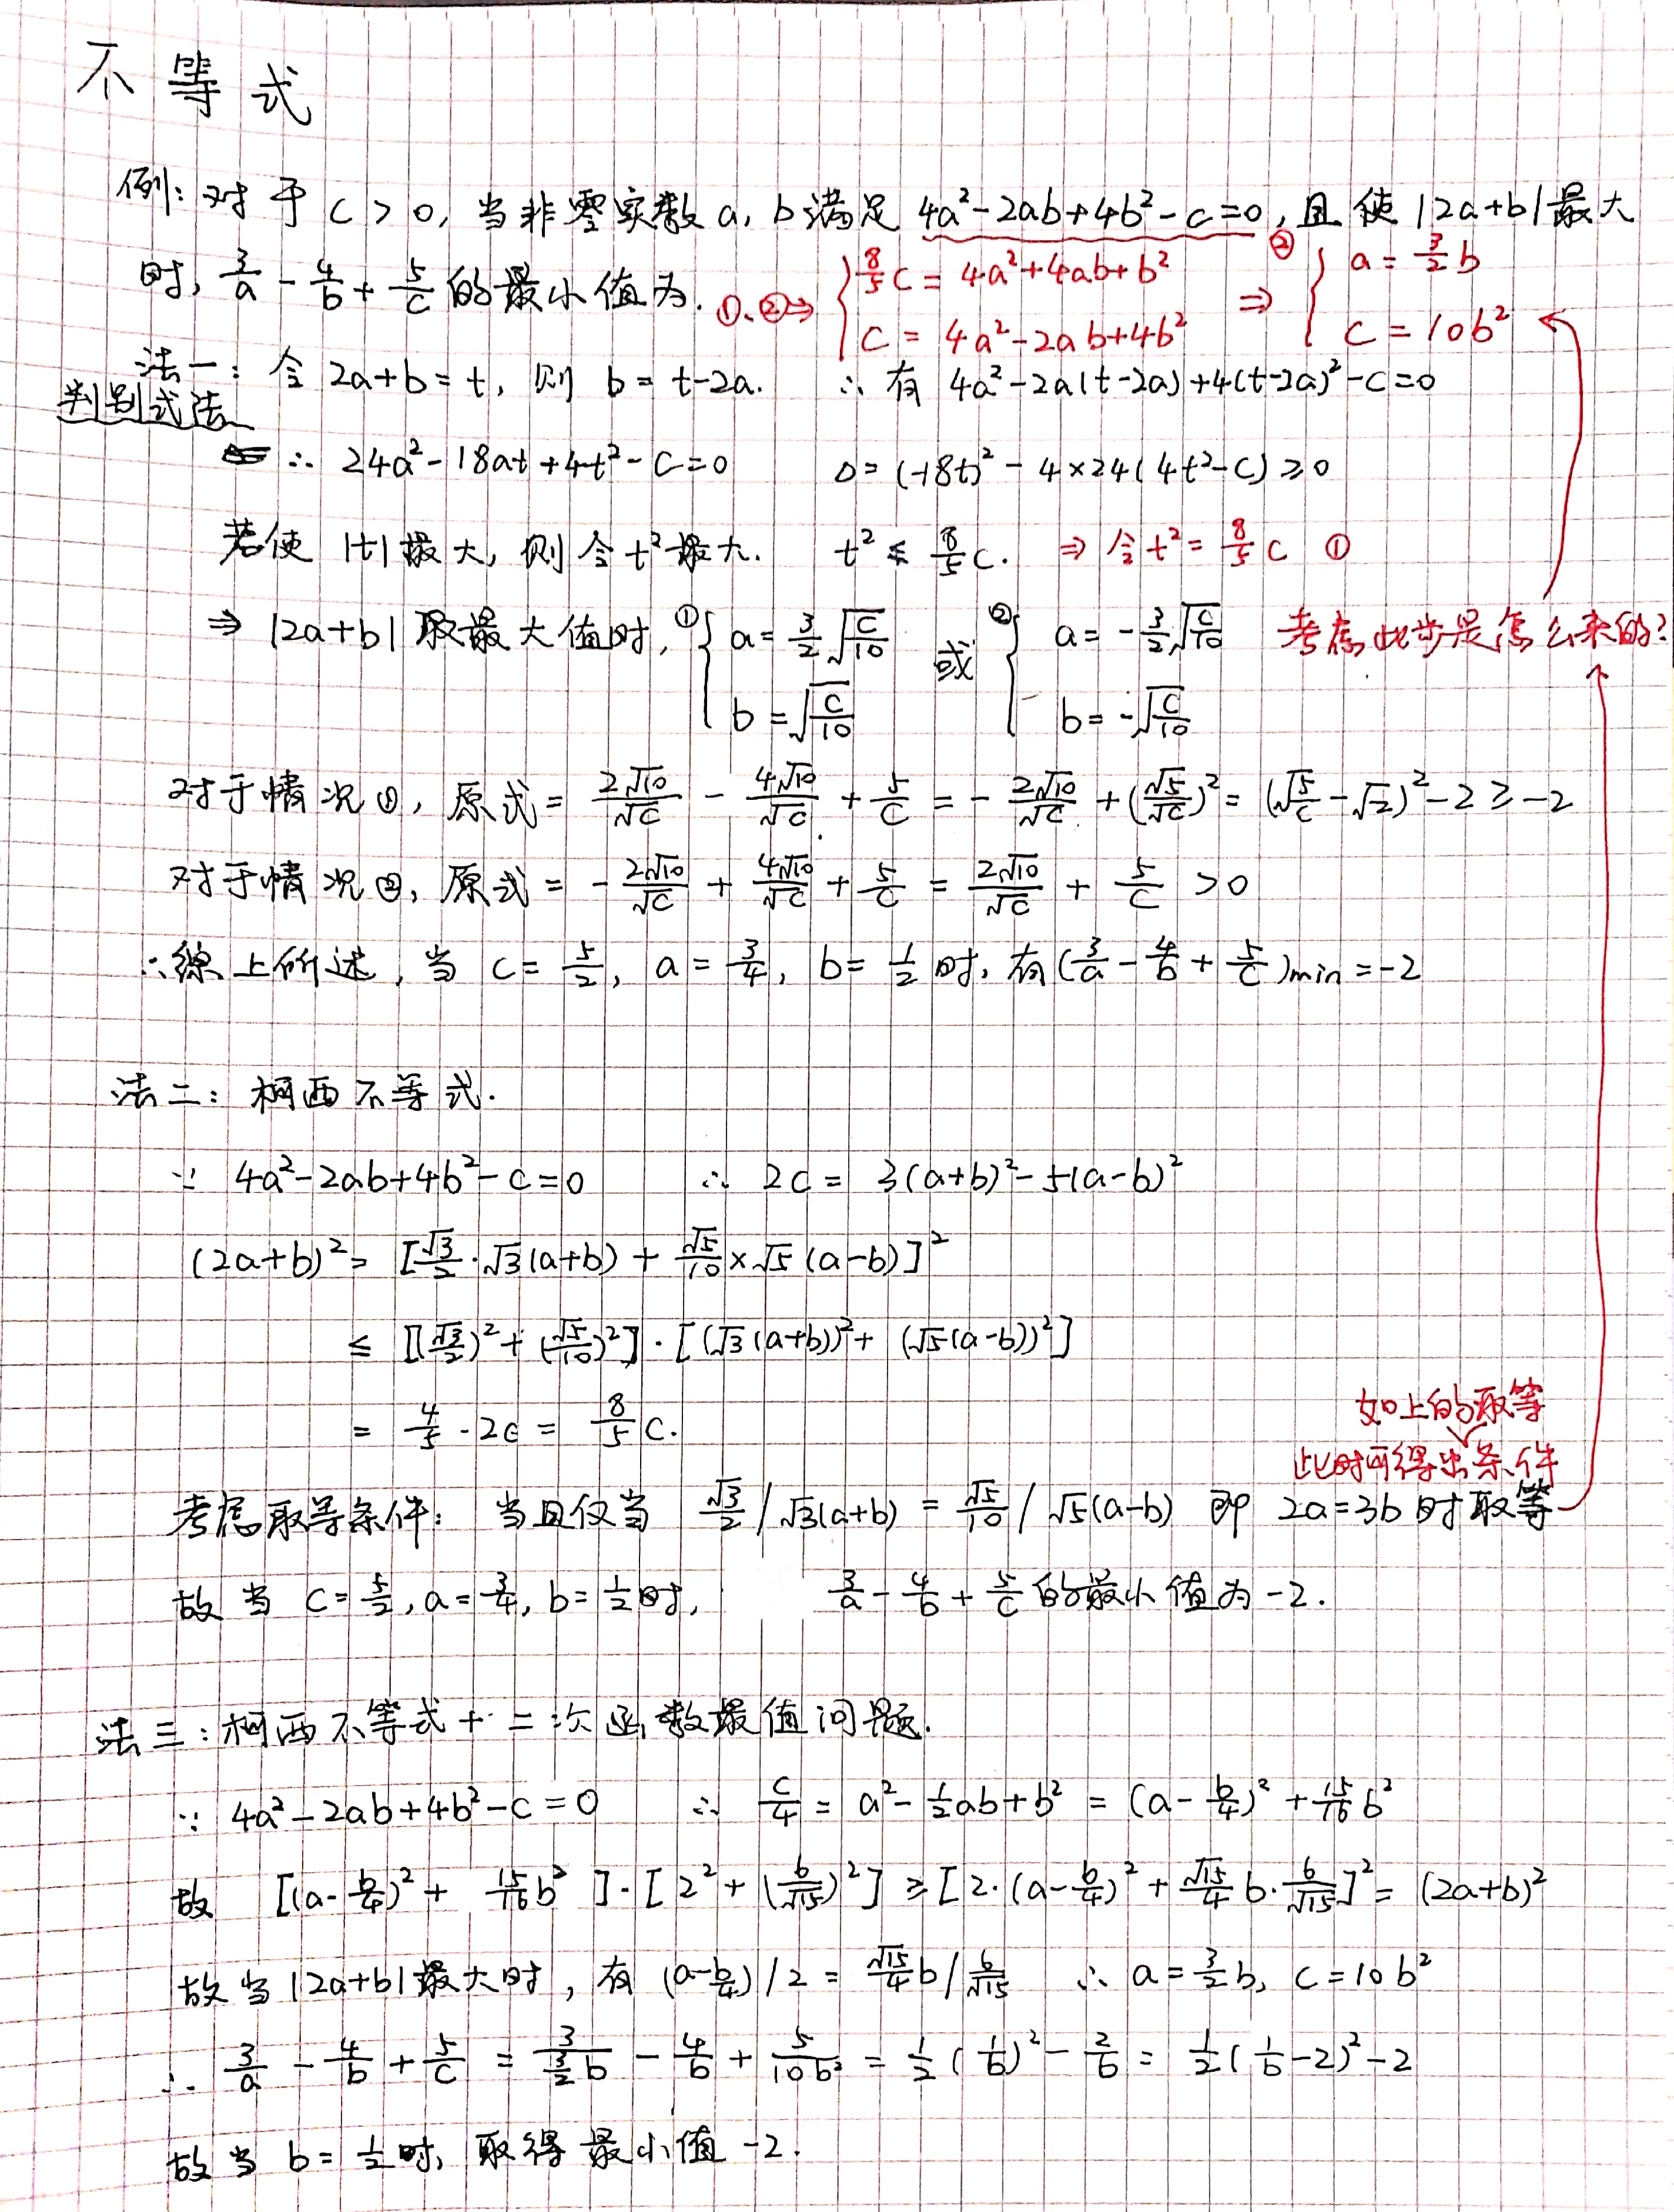 不等式
例: 对于 c > 0, 当非零实数 a, b 满足 4a²-2ab+4b²-c=0, 且使 |2a+b| 最大
②
时, 3/a - 4/b + 5/c 的最小值为.
①、②⇒ { 8/5 c = 4a²+4ab+b²
c = 4a²-2ab+4b²
⇒ { a = 3/2 b
c = 10b²
法一: 令 2a+b=t, 则 b=t-2a. ∴ 有 4a²-2a(t-2a)+4(t-2a)²-c=0
判别式法
∴ 24a²-18at+4t²-c=0 Δ=(-18t)²-4×24(4t²-c)≥0
若使 |t| 最大, 则令 t² 最大. t² ≤ 8/5 c. ⇒ 令 t² = 8/5 c ①
⇒ |2a+b| 取最大值时, ① { a = 3/2 √(c/10) 或 ② { a = -3/2 √(c/10) 考虑此步是怎么来的?
b = √(c/10) b = -√(c/10)
对于情况①, 原式 = 2√10/√c - 4√10/√c + 5/c = - 2√10/√c + (√5/√c)² = (√5/c - √2)² - 2 ≥ -2
对于情况②, 原式 = - 2√10/√c + 4√10/√c + 5/c = 2√10/√c + 5/c > 0
∴综上所述, 当 c = 5/2, a = 3/4, b = 1/2 时, 有 (3/a - 4/b + 5/c)min = -2
法二: 柯西不等式.
∵ 4a²-2ab+4b²-c=0 ∴ 2c = 3(a+b)²-5(a-b)²
(2a+b)² = [√3/2 · √3(a+b) + √5/10 × √5(a-b)]²
≤ [(√3/2)² + (√5/10)²] · [(√3(a+b))² + (√5(a-b))²]
= 4/5 · 2c = 8/5 c.
如上的取等
此时可得出条件
考虑取等条件: 当且仅当 √3/2 / √3(a+b) = √5/10 / √5(a-b) 即 2a=3b 时取等
故当 c = 5/2, a = 3/4, b = 1/2 时, 3/a - 4/b + 5/c 的最小值为 -2.
法三: 柯西不等式 + 二次函数最值问题.
∵ 4a²-2ab+4b²-c=0 ∴ c/4 = a² - 1/2 ab + b² = (a - b/4)² + 15/16 b²
故 [(a - b/4)² + 15/16 b²] · [2² + (6/√15)²] ≥ [2·(a - b/4)² + √15/4 b · 6/√15]² = (2a+b)²
故当 |2a+b| 最大时, 有 (a - b/4)/2 = √15/4 b / 6/√15 ∴ a = 3/2 b, c = 10b²
∴ 3/a - 4/b + 5/c = 3/(3/2 b) - 4/b + 5/10b² = 1/2 (1/b)² - 2/b = 1/2 (1/b - 2)² - 2
故当 b = 1/2 时, 取得最小值 -2.